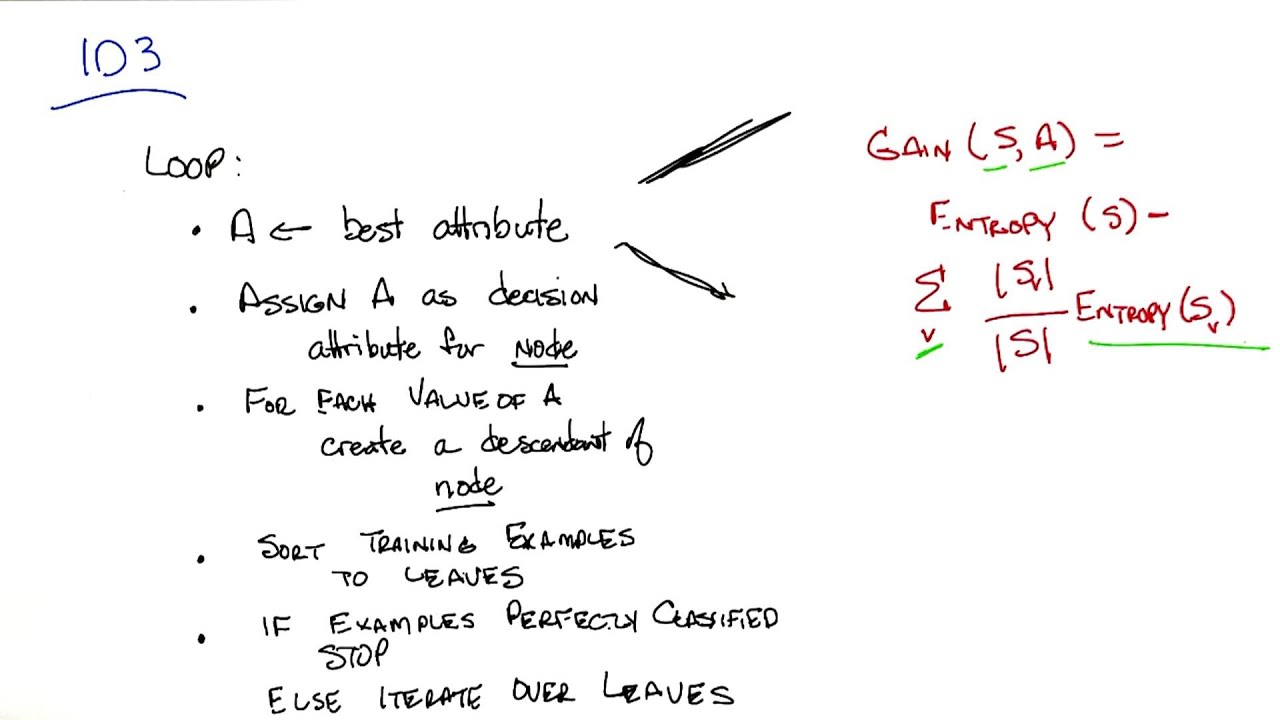 ID3
LOOP:
• A ← best attribute
• ASSIGN A as decision
attribute for NODE
• FOR EACH VALUE OF A
create a descendant of
node
• SORT TRAINING EXAMPLES
TO LEAVES
• IF EXAMPLES PERFECTLY CLASSIFIED
STOP
ELSE ITERATE OVER LEAVES
GAIN (S, A) =
ENTROPY (S) -
∑_v |S_v|/|S| ENTROPY(S_v)